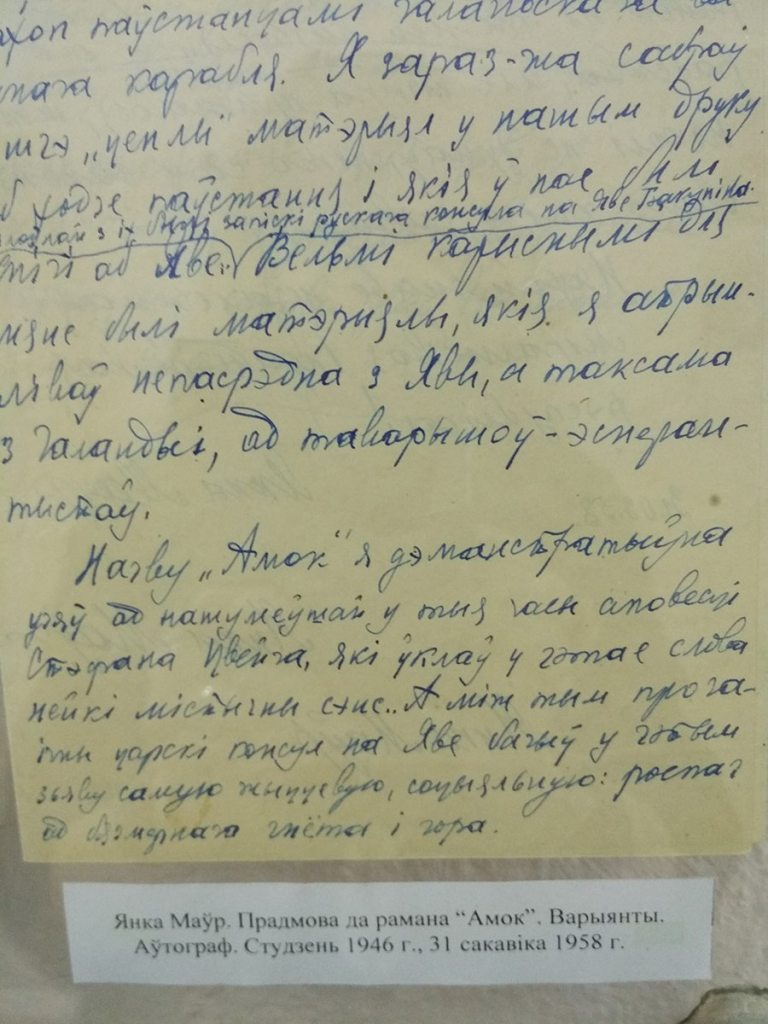 паўстанцамі галандскага ва
карабля. Я зараз-жа сабраў
„цеплы" матэрыял у нашым друку
ходзе паўстання і якія ў нас былі
з іх былі запіскі рускага консула на Яве Бакуніна.
аб Яве. Вельмі карыснымі для
мяне былі матэрыялы, якія я атрым-
ліваў непасрэдна з Явы, а таксама
з Галандыі, ад таварышоў-эсперан-
тыстаў.
Назву „Амок" я дэманстратыўна
узяў ад нашумеўшай у тыя часы аповесці
Стэфана Цвейга, які ўклаў у гэтае слова
нейкі містычны сэнс.. А між тым
царскі консул на Яве бачыў у гэтым
зьяву самую жыццевую, соцыяльную: роспач
ад бязмернага гнёта і гора.
Янка Маўр. Прадмова да рамана “Амок”. Варыянты.
Аўтограф. Студзень 1946 г., 31 сакавіка 1958 г.